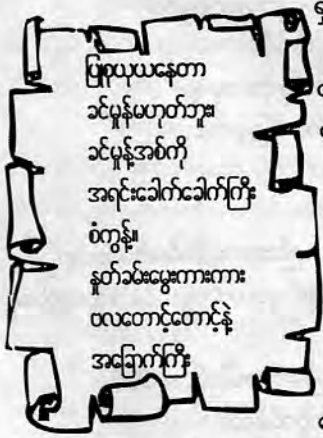 ပြုစုယုယနေတာ
ခင်မွန်မဟုတ်ဘူး။
ခင်မွန့်အစ်ကို
အရင်းခေါက်ခေါက်ကြီး
စံကွန့်။
နှုတ်ခမ်းမွေးကားကား
ဗလတောင့်တောင့်နဲ့
အခြောက်ကြီး